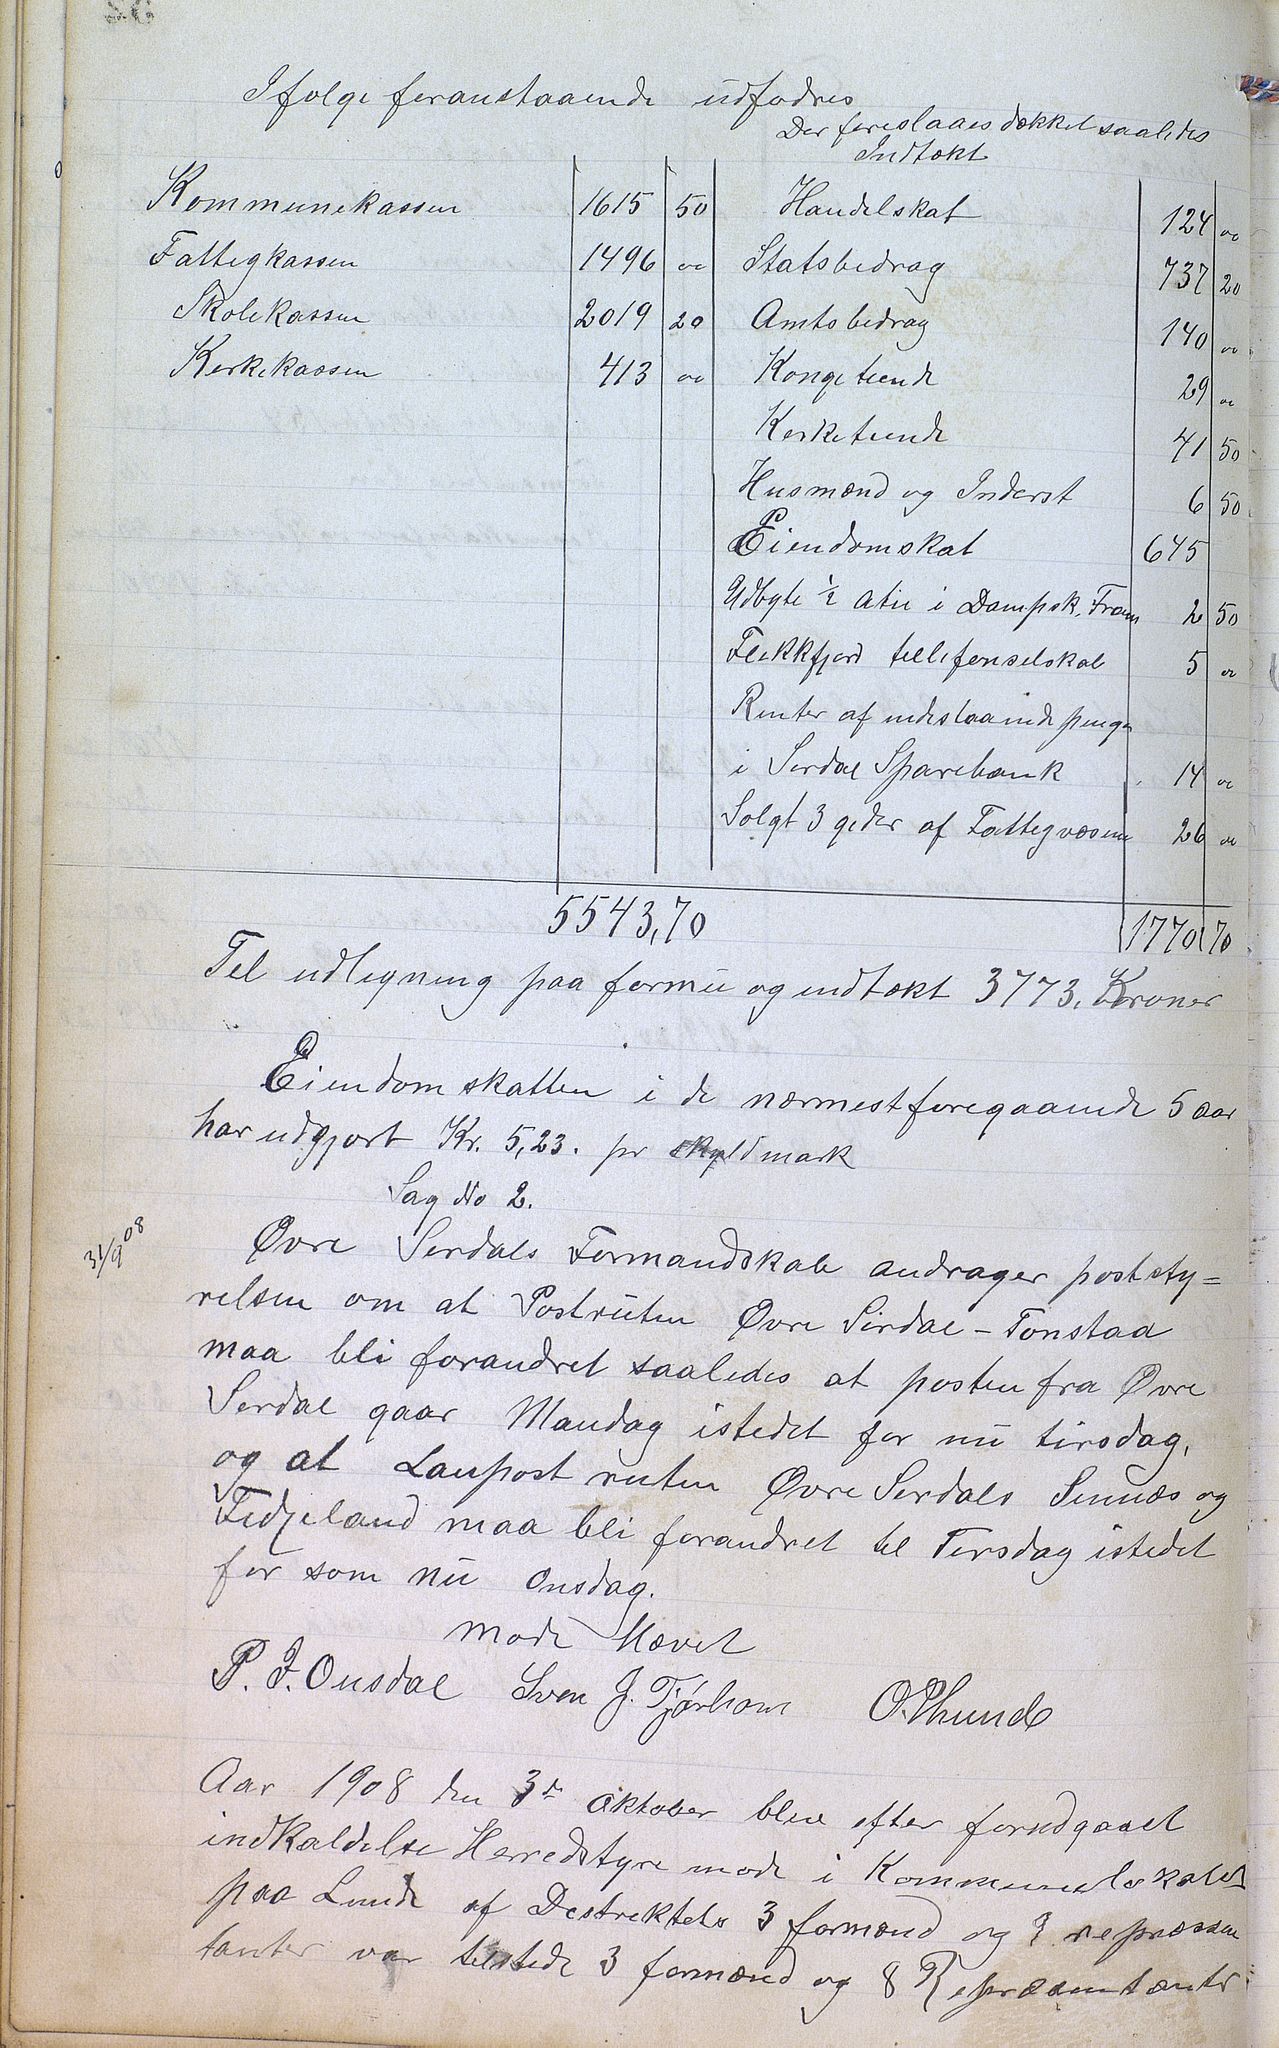 Ifølge foranstaaende udfodres
Der foreslaaes dækket saaledes
Indtækt
Kommunekassen 1615 50 Handelskat 124 00
Fattigkassen 1496 00 Statsbedrag 737 20
Skolekassen 2019 20 Amtsbedrag 140 00
Kerkekassen 413 00 Kongetiende 29 00
Kerketiende 41 50
Husmænd og Inderst 6 50
Eiendomskat 645
Udbyte 1/2 Atie i Dampsk. Fram 2 50
Flekkfjord tellefonselskab 5 00
Renter af indestaaende penger
i Serdal Sparebank 14 00
Solgt 3 geder af Fattegvæsene 26 00
5543,70 1770 70
Tel udligning paa formue og indtækt 3773, Kroner
Eiendomskatten i de nærmestforegaaende 5 aar
har udgjort Kr. 5,23. pr skyldmark
Sag No 2.
31/9 08
Øvre Serdals Formandskab andrager poststy=
relsen om at Postruten Øvre Sirdal - Tonstad
maa bli forandret saaledes at posten fra Øvre
Serdal gaar Mandag istedet for nu tirsdag,
og at Lanpost ruten Øvre Serdals Sinnæs og
Fidjeland maa bli forandret til Tirsdag istedet
for som nu Onsdag.
møde Hævet
P. J. Ousdal Sven J. Tjørhom O. P Lunde
Aar 1908 den 3de Oktober blev efter forudgaaet
indkaldelse Herredstyre møde i Kommunelokalet
paa Lunde af Destrektets 3 formænd og 9 repræssen
tanter var tilstede 3 formænd og 8 Repræsentanter